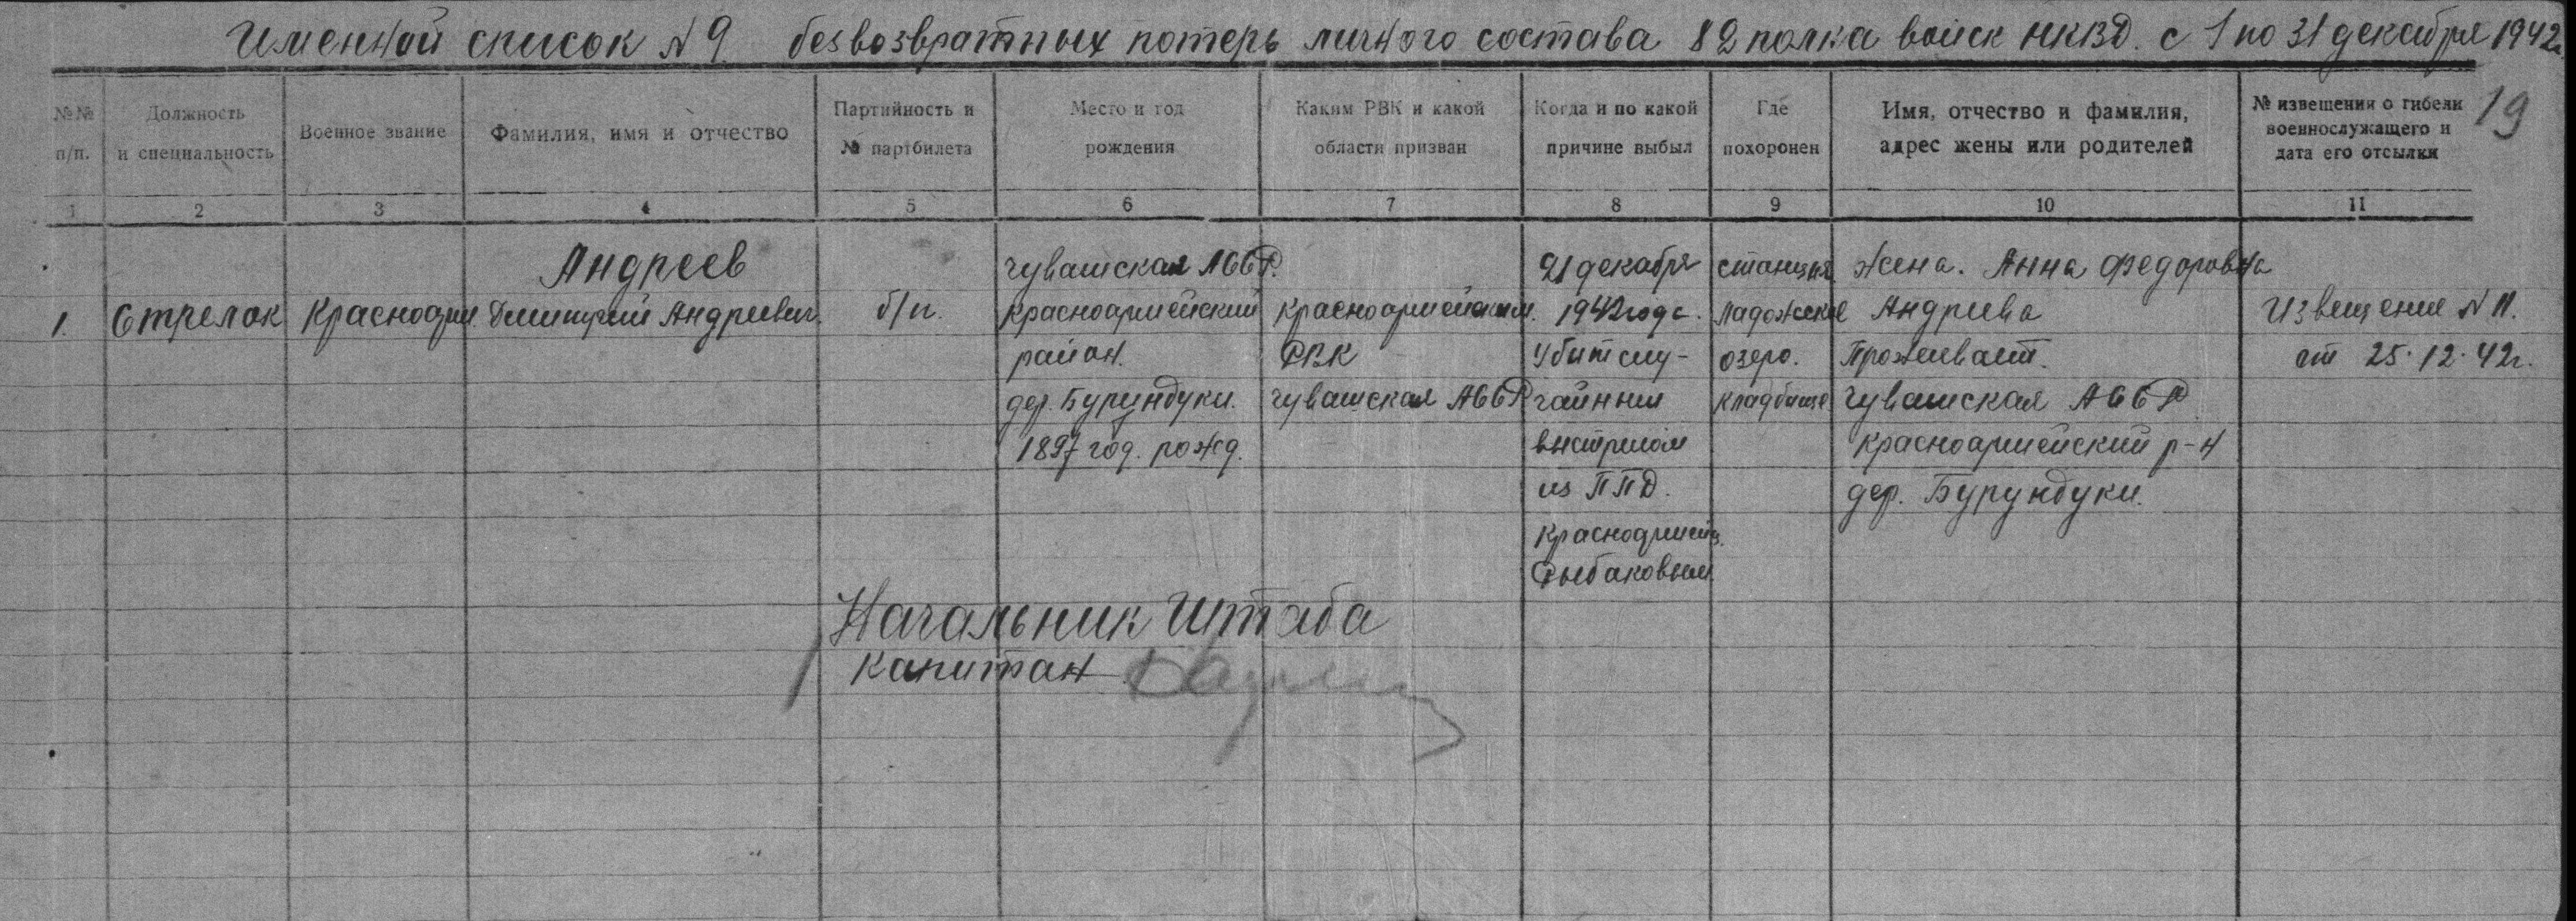 Именной список N 9 безвозвратных потерь личного состава 82 полка войск НКВД. с 1 по 31 декабря 1942г.
19
№№ п/п.
Должность и специальность
Военное звание
Фамилия, имя и отчество
Партийность и № партбилета
Место и год рождения
Каким РВК и какой области призван
Когда и по какой причине выбыл
Где похоронен
Имя, отчество и фамилия, адрес жены или родителей
№ извещения о гибели военнослужащего и дата его отсылки
1 2 3 4 5 6 7 8 9 10 11
1.
Стрелок
Красноарм.
Андреев
Дмитрий Андреевич.
б/п.
Чувашская АССР.
Красноармейский
район.
дер. Бурундуки.
1897 год. рожд.
Красноармейским.
РВК
Чувашская АССР
21 декабря
1942 года.
Убит слу-
чайным
выстрелом
из ППД.
Красноармейц.
Рыбаковым.
станция
Ладожское
озеро.
кладбище
Жена. Анна Федоровна
Андреева
Проживает.
Чувашская АССР
Красноармейский р-н
дер. Бурундуки.
Извещение N 11.
от 25.12.42г.
Начальник Штаба
капитан